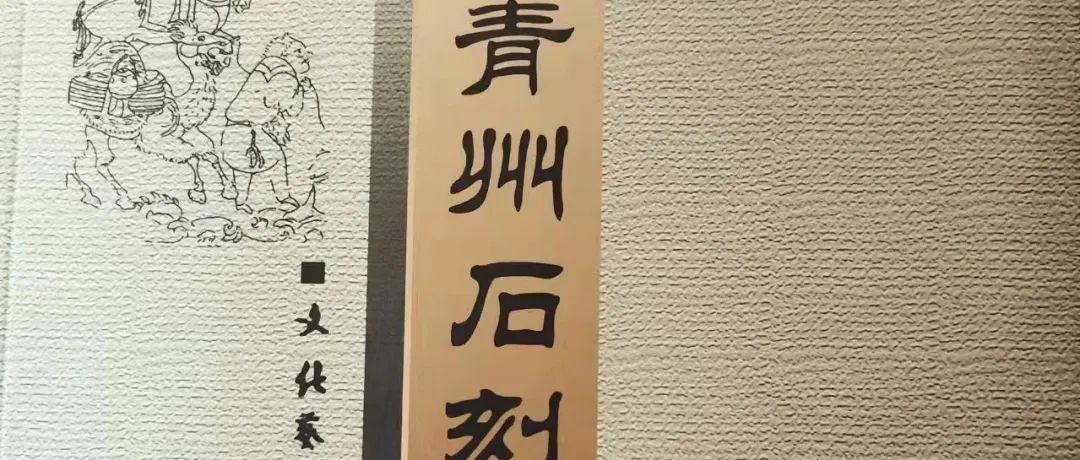 青州石刻
文化藝